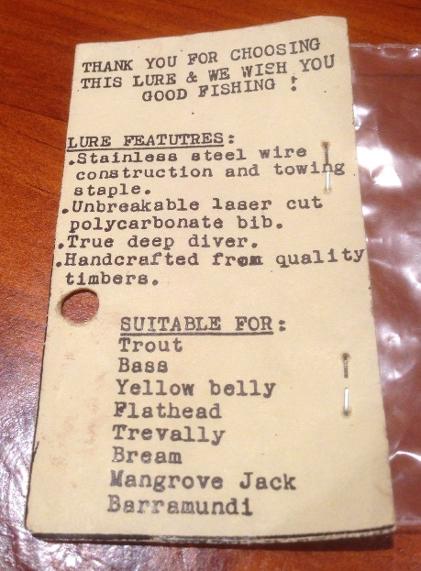 THANK YOU FOR CHOOSING
THIS LURE & WE WISH YOU
GOOD FISHING !
LURE FEATUTRES:
.Stainless steel wire
construction and towing
staple.
.Unbreakable laser cut
polycarbonate bib.
.True deep diver.
.Handcrafted from quality
timbers.
SUITABLE FOR:
Trout
Bass
Yellow belly
Flathead
Trevally
Bream
Mangrove Jack
Barramundi